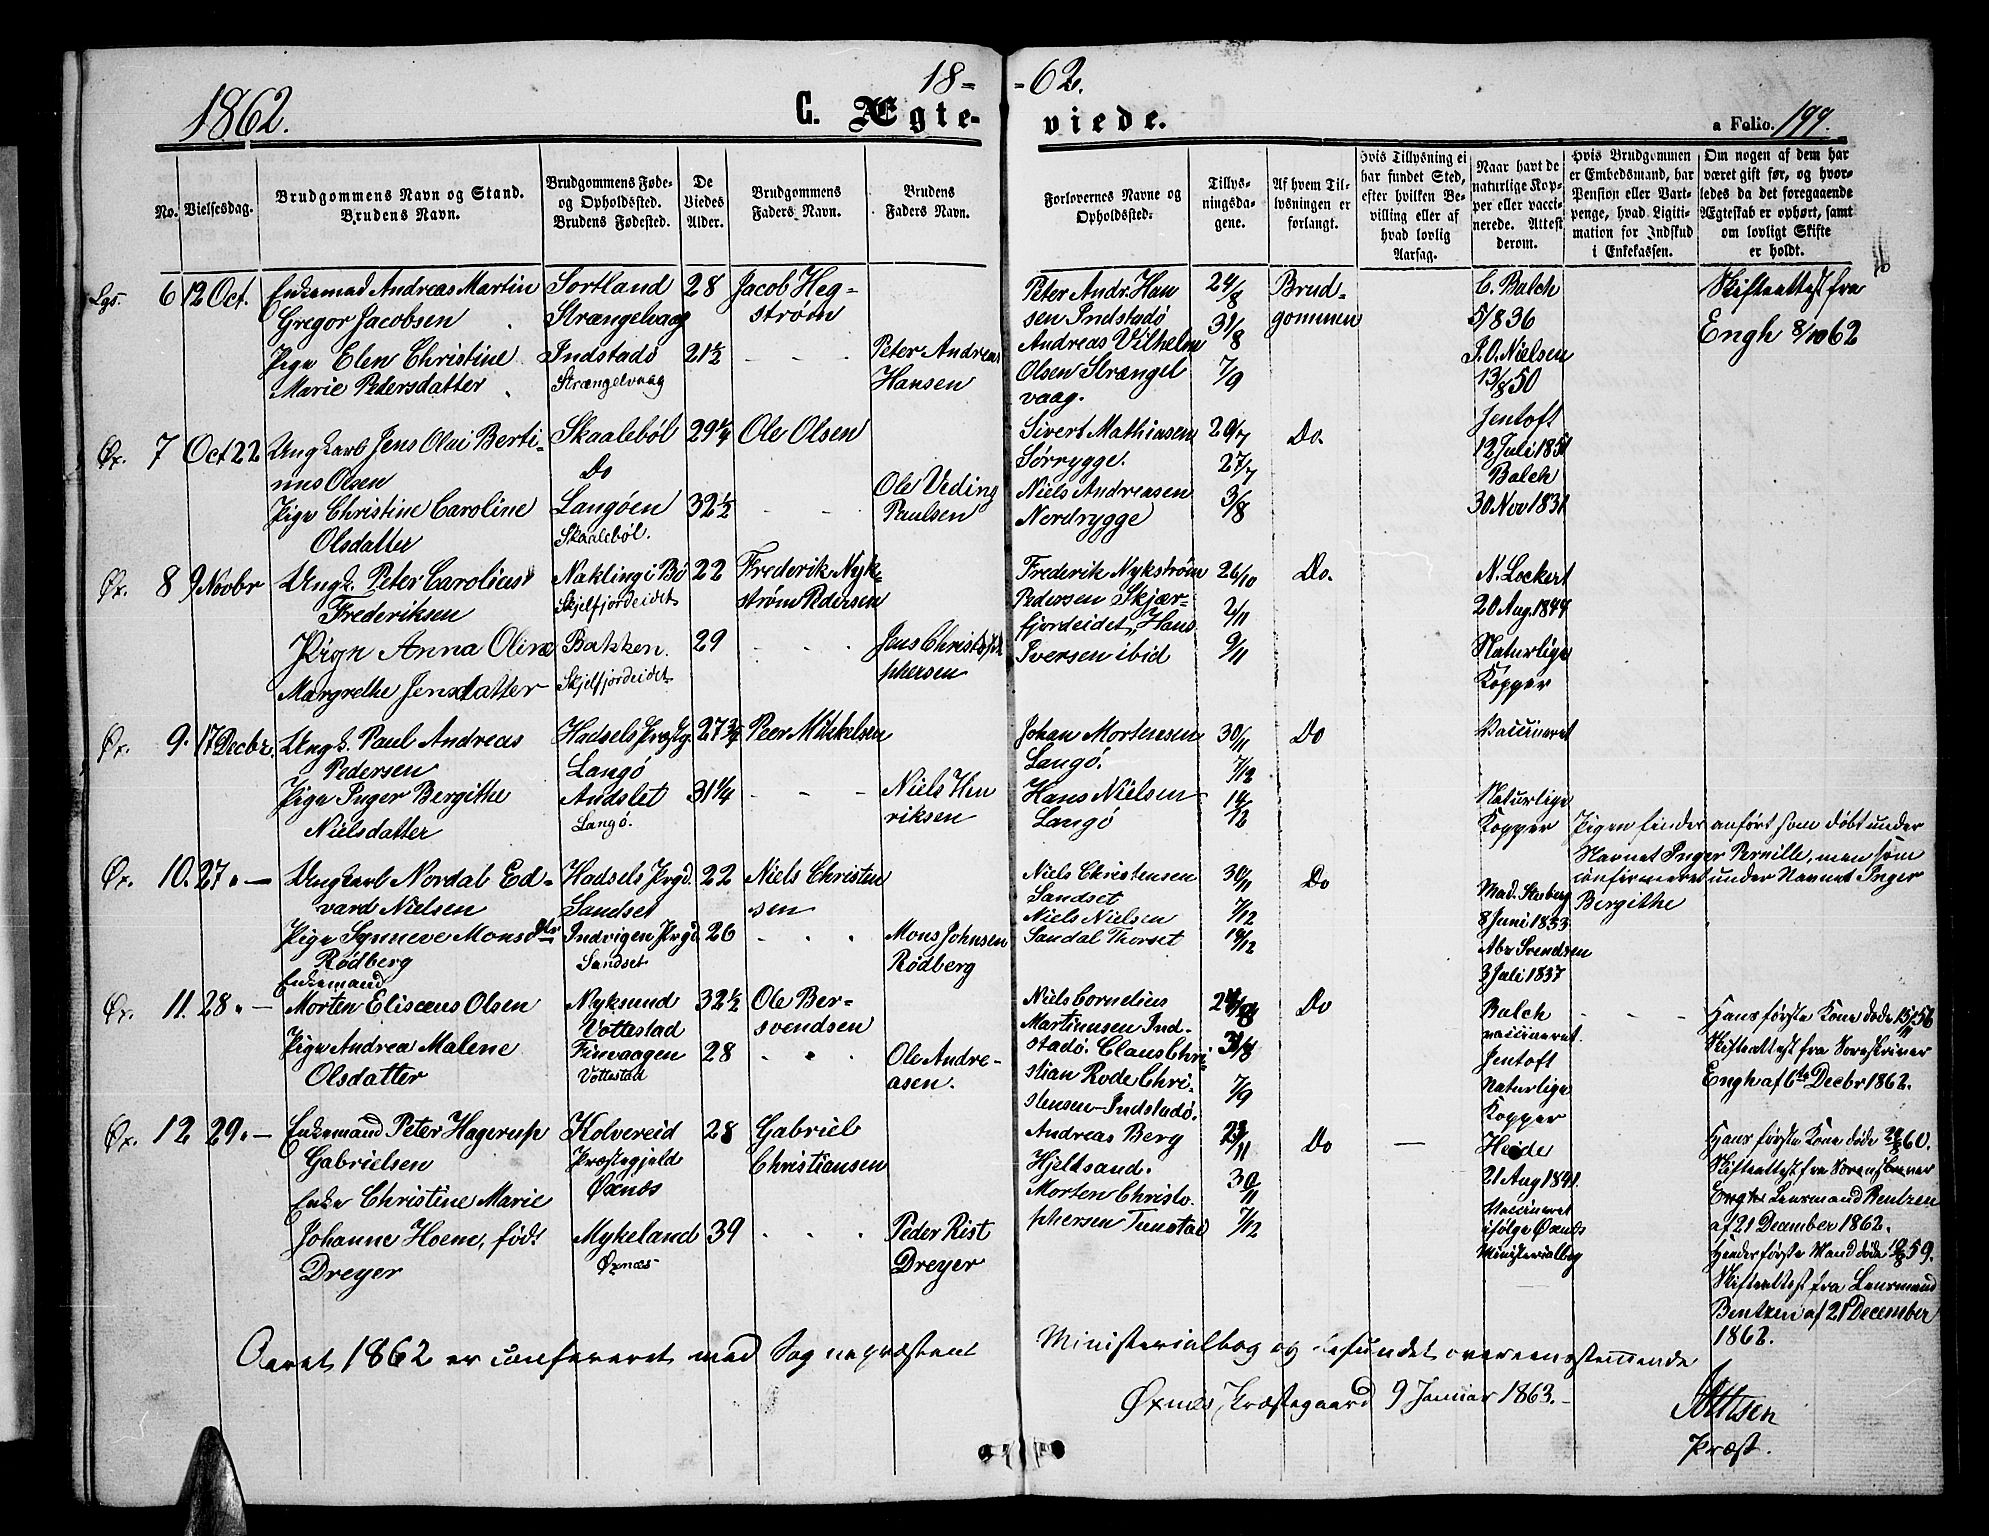 18= =62.
1862.
C. Ægte= viede.
a Folio. 199.
No.
Vielsesdag.
Brudgommens Navn og Stand.
Brudens Navn.
Brudgommens Føde-
og Opholdssted.
Brudens Fødested.
De
Viedes
Alder.
Brudgommens
Faders Navn.
Brudens
Faders Navn.
Forlovernes Navne og
Opholdssted.
Tillys-
ningsda-
gene.
Af hvem Til-
lysningen er
forlangt.
Hvis Tillysning ei
har fundet Sted,
efter hvilken Be-
villing eller af
hvad lovlig
Aarsag.
Naar havt de
naturlige Kop-
per eller vacci-
nerede. Attest
derom.
Hvis Brudgommen
er Embedsmand, har
Pension eller Vart-
penge, hvad Ligiti-
mation for Indskud
i Enkekassen.
Om nogen af dem har
været gift før, og hvor-
ledes da det foregaaende
Ægteskab er ophørt, samt
om lovligt Skifte
er holdt.
Lgs. 6 12 Oct. Enkemad Andreas Martin Sortland 28 Jacob Heg-
Gregor Jacobsen Strængelvaag strøm
Pige Elen Christine Indstadø 21½ - - - Peter Andreas
Marie Pedersdatter Strængelvaag Hansen
Peter Andr. Han 24/8 Brud- C. Balch Skifteattest fra
sen Indstadø 31/8 gommen 5/8 36 Engh 8/10 62
Andreas Vilhelm J.O. Nielsen
Olsen Strængel 7/9 13/8 50
vaag.
Øx. 7 Oct 22 Ungkarl Jens Olai Berti- Skaalebøl 29¼ Ole Olsen
nus Olsen Do
Pige Christine Caroline Langøen 32½ - - - Ole Veding
Olsdatter Skaalebøl. Paulsen
Sivert Mathiasen 20/7 Do. Jentoft
Sørrygge. 27/7 12 Juli 1851
Niels Andreasen 3/8 Balch
Nordrygge 30 Nov 1831
Øx. 8 9 Novbr Ungk. Peter Carolius Naklingi Bø 22 Frederik Nyk-
Frederiksen Skjelfjordeidet strøm Pedersen
Pign Anna Olina Bakken. 29 - - - Jens Christof
Margrethe Jensdatter Skjelfjordeidet phersen
Frederik Nykstrøm 26/10 Do. N. Lockert
Pedersen Skjær- 2/11 20 Aug. 1844
fjordeidet, Hans Naturlige
Iversen ibid 9/11 Kopper
Øx. 9. 17 Decbr. Ungk. Paul Andreas Hadsels Prstg. 27¾ Peer Mikkelsen
Pedersen Langø
Pige Inger Bergithe Andslet 31¼ - - - Niels Hen
Nielsdatter Langø. riksen
Johan Mortensen 30/11 Do Vaccineret
Langø. 7/12
Hans Nielsen 14/12 Naturlige
Langø Kopper Pigen findes anført som døbt under
Navnet Inger Pernille, men som
confirmeret under Navnet Inger
Bergithe
Øx. 10. 27. - Ungkarl Nordal Ed- Hadsels Prgd. 22 Niels Christen
vard Nielsen Sandset sen
Pige Synneve Monsdtr Indvigen Prgd 26 - - - Mons Johnsen
Rødberg Sandset Rødberg
Niels Christensen 30/11 Do
Sandset 7/12 Mad.
Niels Nielsen 8 Juni 1853
Sandal Thorset 14/12 Abr Svendsen
3 Juli 1837
Enkemand
Øx. 11. 28. - Morten Elisæus Olsen Nyksund 32½ Ole Ber-
Vottestad svendsen
Pige Andrea Malene Finvaagen 28 - - Ole Andre-
Olsdatter Vottestad asen.
Niels Cornelius 24/8 Do Balch - - - Hans første Kone døde 15/11 56
Martinusen Ind- vaccineret. Skifteattest fra Sorenskriver
stadø. Claus Chri- 31/8 Jentoft Engh af 6te Decbr 1862.
stian Rode Chri- 7/9 Naturlige
stensen Indstadø. Kopper
Øx. 12 29. - Enkemand Peter Hagerup Kolvereid 28 Gabriel
Gabrielsen Præstegjeld Christiansen
Øxnæs
Enke Christine Marie
Johanne Hoem, født Mykeland 39 - - - Peder Rist
Dreyer Øxnæs Dreyer
Andreas Berg 23/11 Do — Heide Hans første Kone døde 60.
Hjeltsand. 30/11 21 Aug 1841. Skifteattest fra Sorenskriver
Morten Christo- Vaccineret Engh Lensmand Bentzen
phersen Tunstad 7/12 ifølge Øxnæs af 21 December 1862.
Ministerialbog Hendes første Mand døde 59.
Skifteattest fra Lensmand
Bentzen af 21 December
1862.
Aaret 1862 er confereret med Sognepræstens Ministerialbog og befundet overeensstemmende
Øxnæs Præstegaard 9 Januar 1863.
Præst.